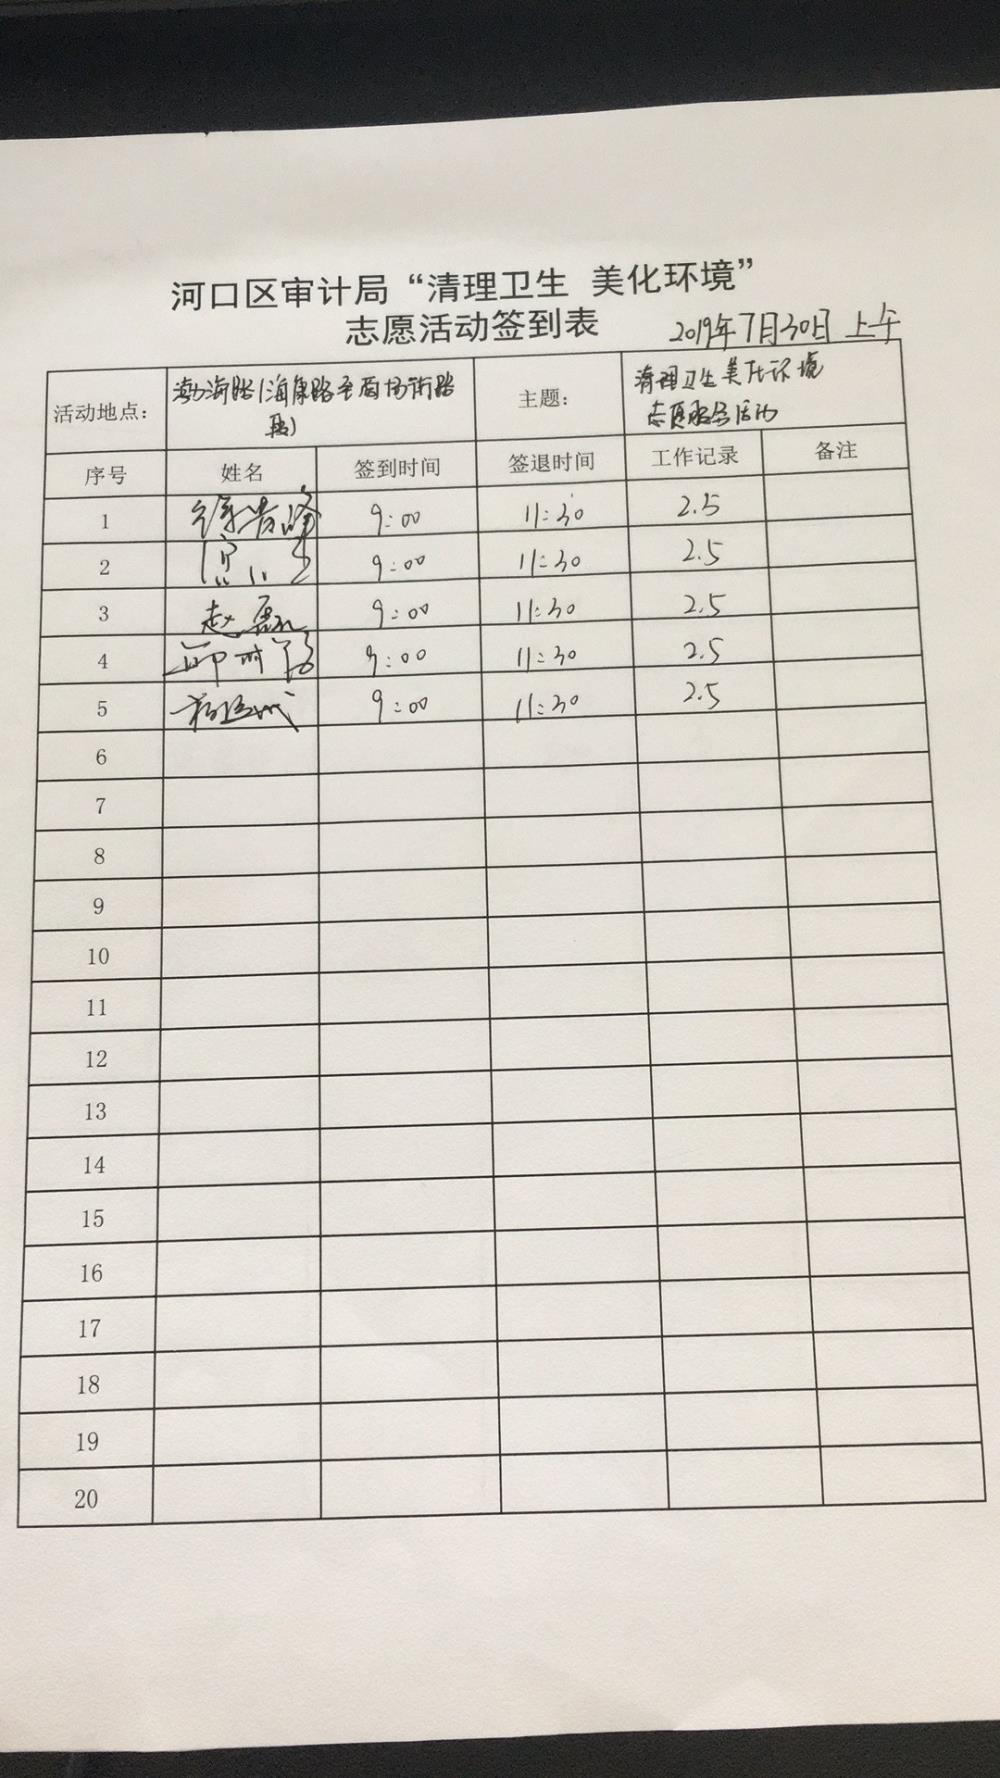 河口区审计局“清理卫生 美化环境”
志愿活动签到表 2019年7月30日 上午
活动地点： 渤海路(海康路至 主题： 清理卫生美化环境
段) 志愿服务活动
序号 姓名 签到时间 签退时间 工作记录 备注
1 9:00 11:30 2.5
2 9:00 11:30 2.5
3 赵磊 9:00 11:30 2.5
4 9:00 11:30 2.5
5 9:00 11:30 2.5
6
7
8
9
10
11
12
13
14
15
16
17
18
19
20